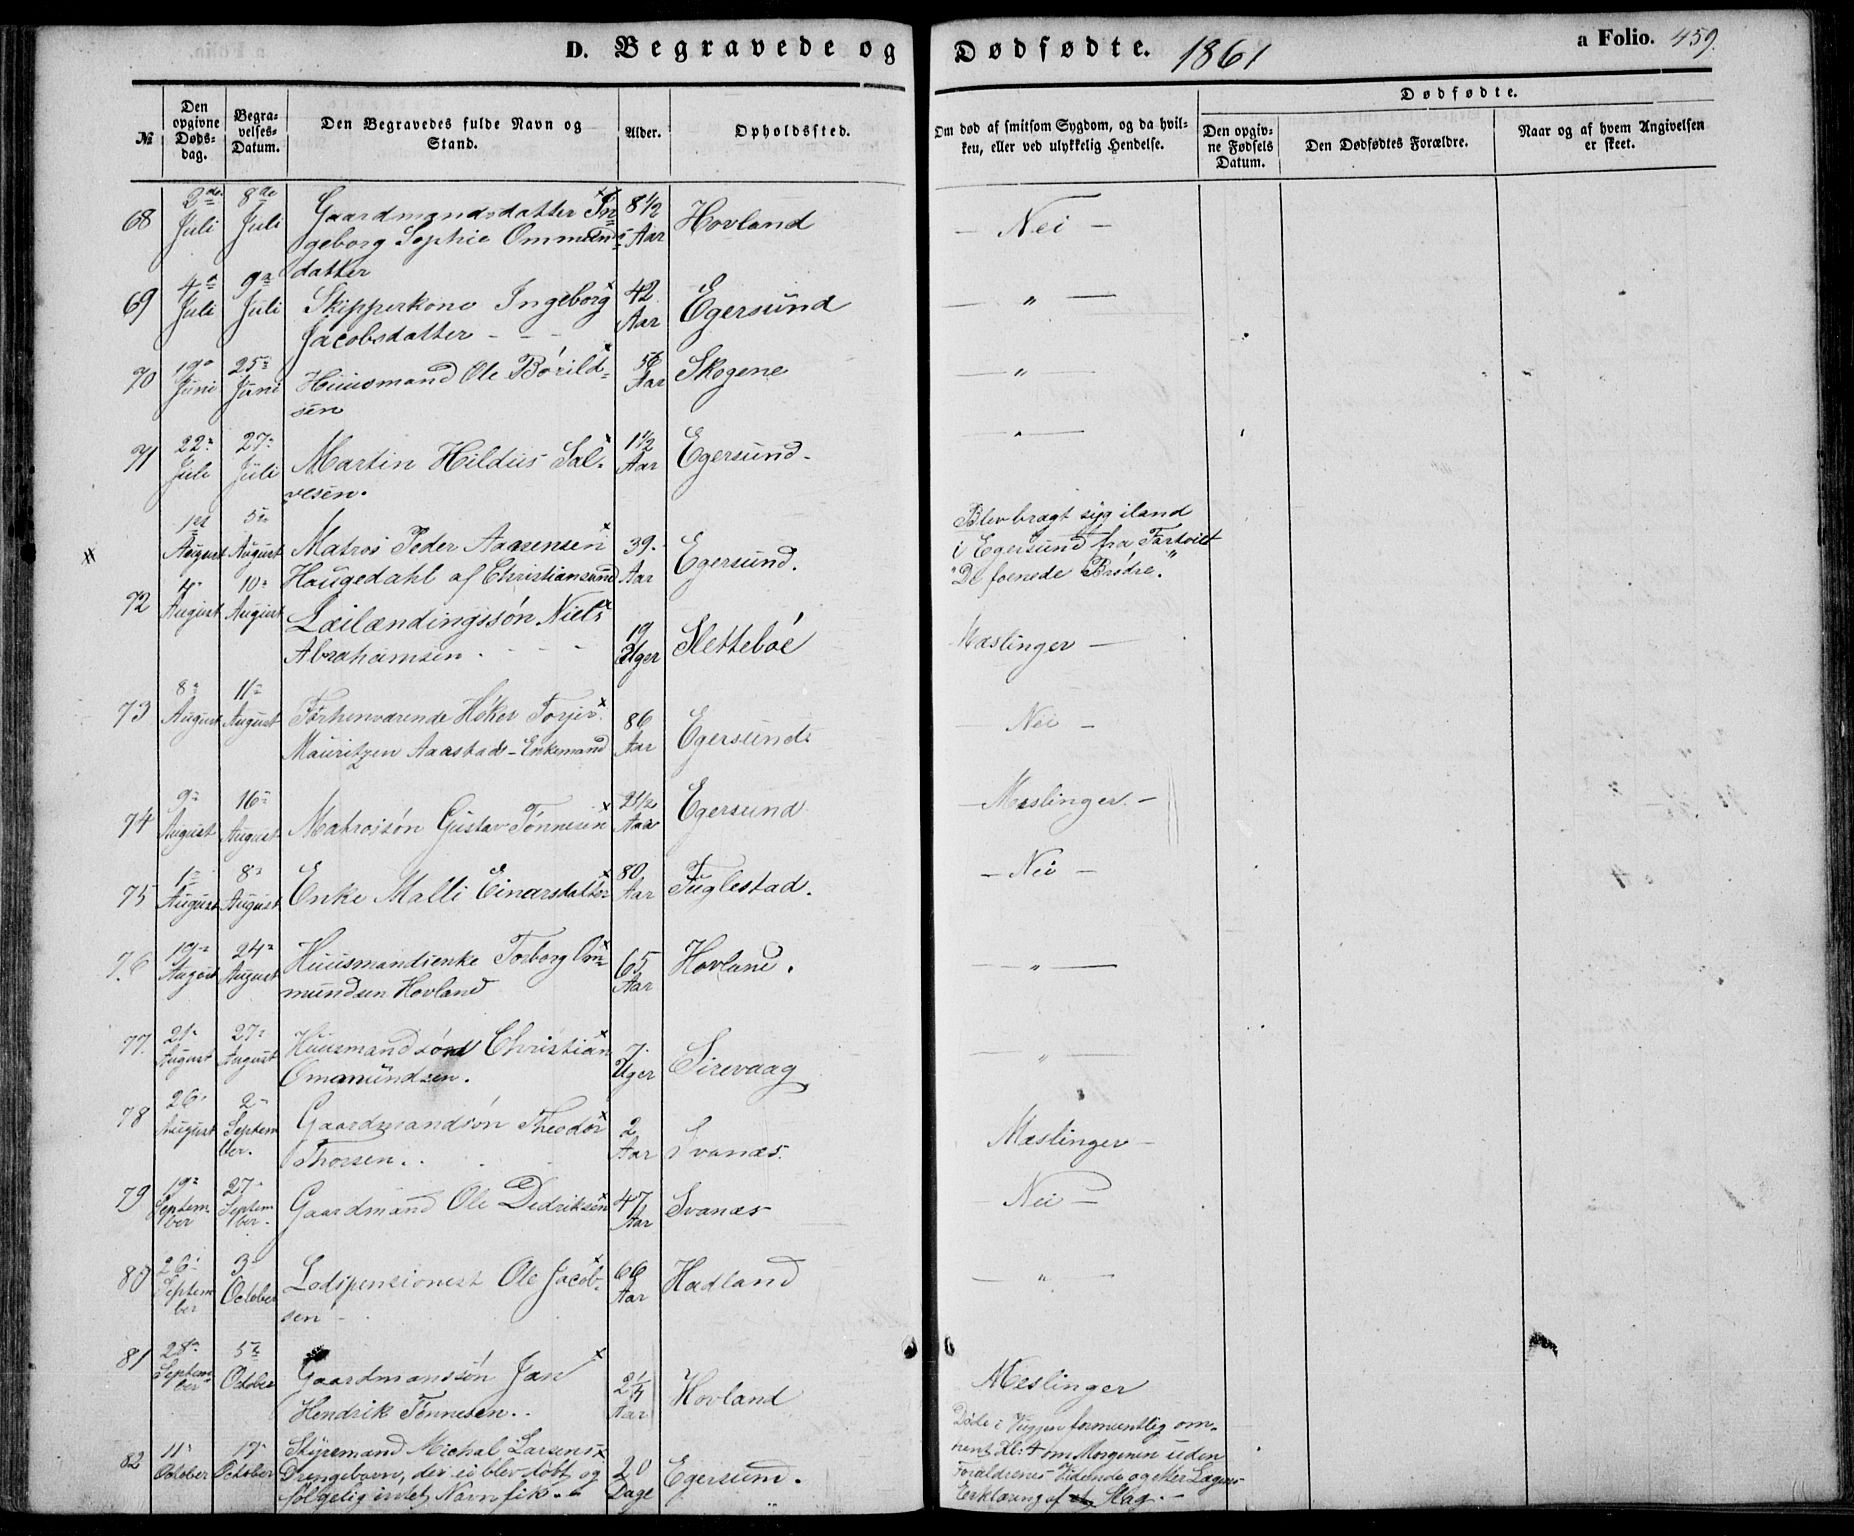 D. Begravede og Dødfødte. 1861
a Folio. 459.
№
Den opgivne Døds-dag.
Begra-velses-Datum.
Den Begravedes fulde Navn og Stand.
Alder.
Opholdssted.
Om død af smitsom Sygdom, og da hvil-ken, eller ved ulykkelig Hendelse.
Dødfødte.
Den opgiv-ne Fødsels Datum.
Den Dødfødtes Forældre.
Naar og af hvem Angivelsen er skeet.
68 3de Juli 8de Juli Gaardmandsdatter In= 8 1/2 Aar Hovland – Nei –
geborg Sophie Ommunds=
datter
69 4de Juli 9de Juli Skipperkone Ingeborg 42 Aar Egersund — " —
Jacobsdatter - - -
70 19de Juni 25de Juni Huusmand Ole Bórild= 56 Aar Skogene — " —
sen
71 22de Juli 27de Juli Martin Hildus Sal= 1 1/2 Aar Egersund. — " —
vesen.
# 1ste August 5te August Matros Peder Aanensen 39. Aar Egersund. Blev bragt syg iland
Haugedahl af Christiansund i Egersund fra Fartoiet
"De foenede Brödre."
72 4de August 10de August Leilændingssøn Niels 19 Uger Slettebøe Mæslinger –
Abrahamsen. - - -
73 8de August 11te August Forhenværende Høker Torjer 86 Aar Egersund. – Nei –
Mauritzen Aarstad - Enkemand
74 9de August 16de August Matrossøn Gustav Tønnesen 2 1/2 Aar Egersund – Meslinger. –
75 1ste August 8de August Enke Malli Einarsdatter 80. Aar Fuglestad. – Nei –
76 19de August 24de August Huusmandsenke Torborg Om= 65 Aar Hovland. — " —
mundsen Hovland
77. 21de August 27de August Huusmandssøn Christian 7. Uger Sirevaag — " —
Ommundsen.
78 26de August 2den September. Gaardmandssøn Theodor 2 Aar Svanæs. Mæslinger –
Thorsen.
79 19de September 27de September. Gaardmand Ole Dedriksen 47 Aar Svanæs – Nei –
80 26de September 3die October Lodspensionist Ole Jacob= 66 Aar Hadland — " —
sen -
81 28de September 5te October Gaardmanssøn Jan 2 1/4 Aar Hovland Meslinger
Hendrik Tønnesen.
82 11te October 17de October Styrmand Michal Larsens 20 Dage Egersund. Døde i Vuggen formentlig om=
Drengebarn, der ei blev døbt og trent Kl: 4 om Morgenen uden
følgelig intet Navn fik. Forældrenes Vidende og efter Læges
Erklæring af Slag. –